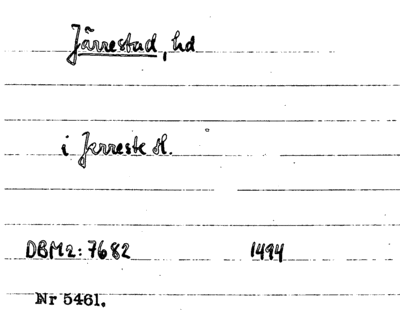 Järrestad, hd
i Jerreste H.
DBM2: 7682 1494
Nr 5461.